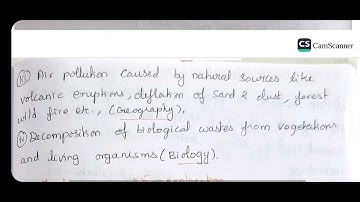 CS CamScanner
(iii) Air pollution caused by natural sources like
volcanic eruptions, deflation of sand & dust, forest
wild fire etc., (Geography).
(iv) Decomposition of biological wastes from vegetations
and living organisms (Biology).